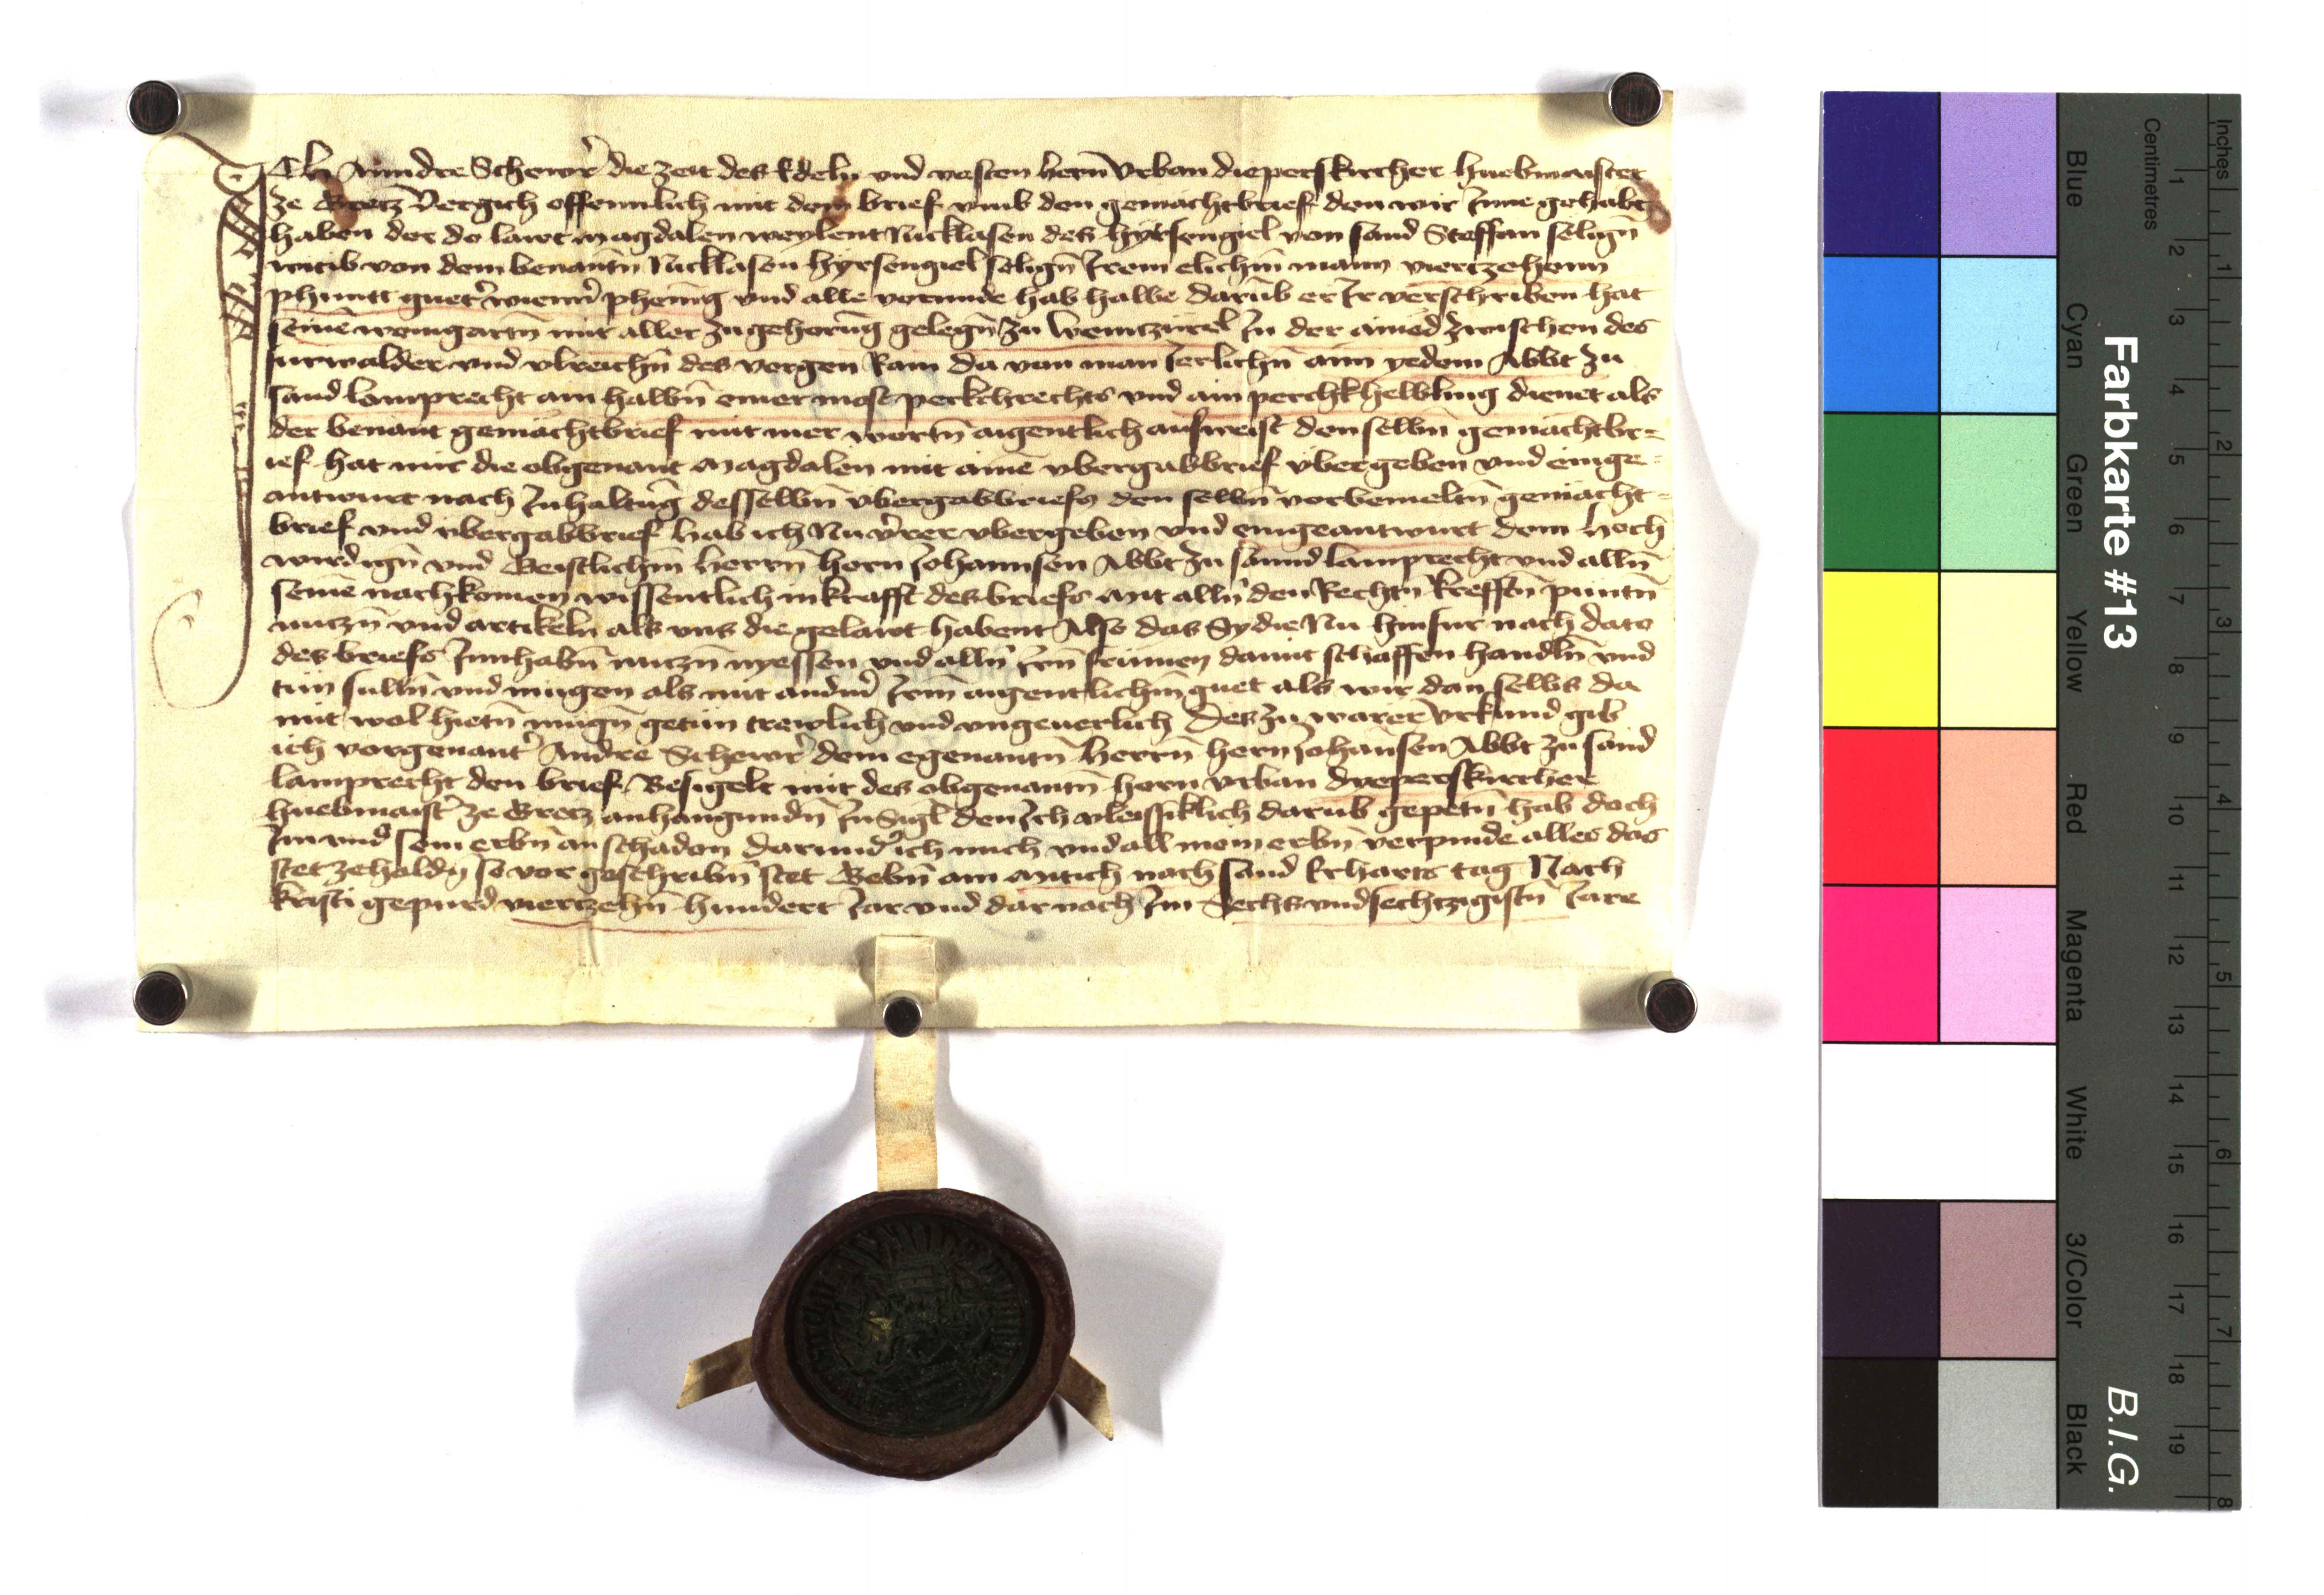 Ich Anndre Schewr̄ die zeit des Edeln vnd vesten hern̄ Vrban dieperskircher huebmaister
ze Gretz Vergich offennlich mit dem brief vmb den gemächtbrief den wir Inne gehabt
haben der do lawt Magdalen weylent Nicklasen des hyrsengiel von sand Steffan selign̄
witib von dem benantn̄ Nicklasen hyrsengiel selign̄ Irem elichm̄ mann viertzehenn
phuntt guet̄ wienn̄ phenīg vnd alle varunde hab halbe darub er Ir verschriben hat
seinē weingartn̄ mit aller zugehorūg gelegn̄ zu Wenitzūrl In der ainod zwischen des
furwalder vnd vlreichn̄ des vorgen Rain da von man Ierlichn̄ aim yedem Abbt zu
sand lamprecht ain halbn̄ emer most perkchrechts vnd ain perchkhelbling dienet als
der benant gemächtbrief mit mer wortn̄ aigentlich aufweist denselbm̄ gemächtbr=
ief hat mir die obgenant Magdalen mit ainē vbergabbrief vbergeben vnd einge=
antwurt nach Inhaltūg desselbm̄ vbergabbriefs den selbn̄ vorbemeltn̄ gemächt=
brief vnd vbergabbrief hab ich Nu v̄rer vbergeben vnd eingeantwurt dem hoch
wirdign̄ vnd Geistlichm̄ herrn̄ hern Johannsen Abbt zu sannd lamprecht vnd alln̄
seinē nachkomen wissentlich in krafft des briefs Mit alln̄ den Rechtn̄ kreffūn püntn̄
nutzn̄ vnd artikeln als vns die gelawt habent Also das Sy die Nu hinfur nach dato
des briefs Innhabn̄ nutzn̄ nyessen vnd alln̄ Irn̄ frümen damit schaffen handln̄ vnd
tün sulln̄ vnd mügen als mit andm̄ Irm̄ aigentlichm̄ guet als wir dan selbs da
mit wol hietn̄ mügn̄ getün trewlich vnd vngeuerlich Des zu warer Vrkund gib
ich vorgenant̄ Andre Schewr̄ dem egenantn̄ herrn̄ hern Johansen Abbt zu sand
lamprecht den brief Besigelt mit des obgenantn̄ hern Vrban dyeperskircher
huebmaist̄ ze Gretz anhangundn̄ InSigl den Ich vleissiklich darub gepetn̄ hab doch
Im vnd sein erbn̄ an schaden darund̄ ich mich vnd all mein erbn̄ verpinde alles das
stet zehaldn̄ so vor geschribn̄ stet Gebn̄ am Mitich nach sand Erharts tag Nach
kristi gepurd viertzehn̄ hundert Iar vnd dar nach Im Sechsvndsechtzigistn̄ Iare
Farbkarte #13
B.I.G.
Inches
Centimetres
1 2 3 4 5 6 7 8 9 10 11 12 13 14 15 16 17 18 19
1 2 3 4 5 6 7 8
Blue
Cyan
Green
Yellow
Red
Magenta
White
3/Color
Black